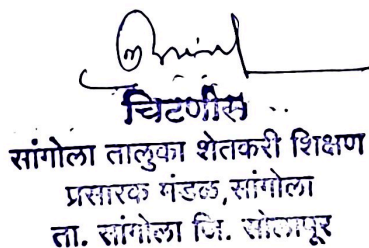 चिटणीस
सांगोला तालुका शेतकरी शिक्षण
प्रसारक मंडळ, सांगोला
ता. सांगोला जि. सोलापूर